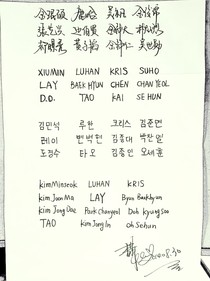 金珉锡 鹿晗 吴亦凡 金俊绵
张艺兴 边伯贤 金钟大 朴灿烈
都暻秀 黄子韬 金钟仁 吴世勋
XIUMIN LUHAN KRIS SUHO
LAY BAEKHYUN CHEN CHANYEOL
D.O. TAO KAI SEHUN
김민석 루한 크리스 김준면
레이 변백현 김종대 박찬열
도경수 타오 김종인 오세훈
kim Minseok LUHAN KRIS
kim Joon Ma LAY Byun Baekhyun
kim Jong Dae Park Chanyeol Doh kyung soo
TAO kim Jong In oh Sehun